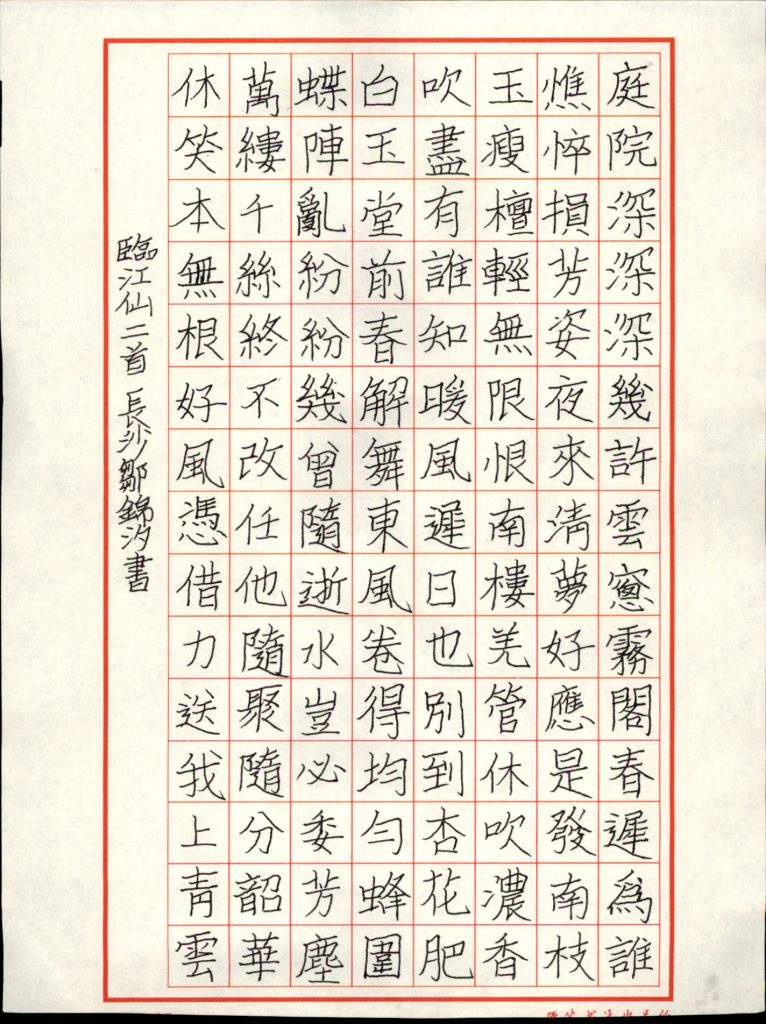 庭院深深深幾許雲窻霧閣春遲爲誰
憔悴損芳姿夜來淸夢好應是發南枝
玉瘦檀輕無限恨南樓羌管休吹濃香
吹盡有誰知暖風遲日也別到杏花肥
白玉堂前春解舞東風卷得均勻蜂圍
蝶陣亂紛紛幾曾隨逝水豈必委芳塵
萬縷千絲終不改任他隨聚隨分韶華
休笑本無根好風憑借力送我上青雲
臨江仙二首 長沙鄒錦汐書